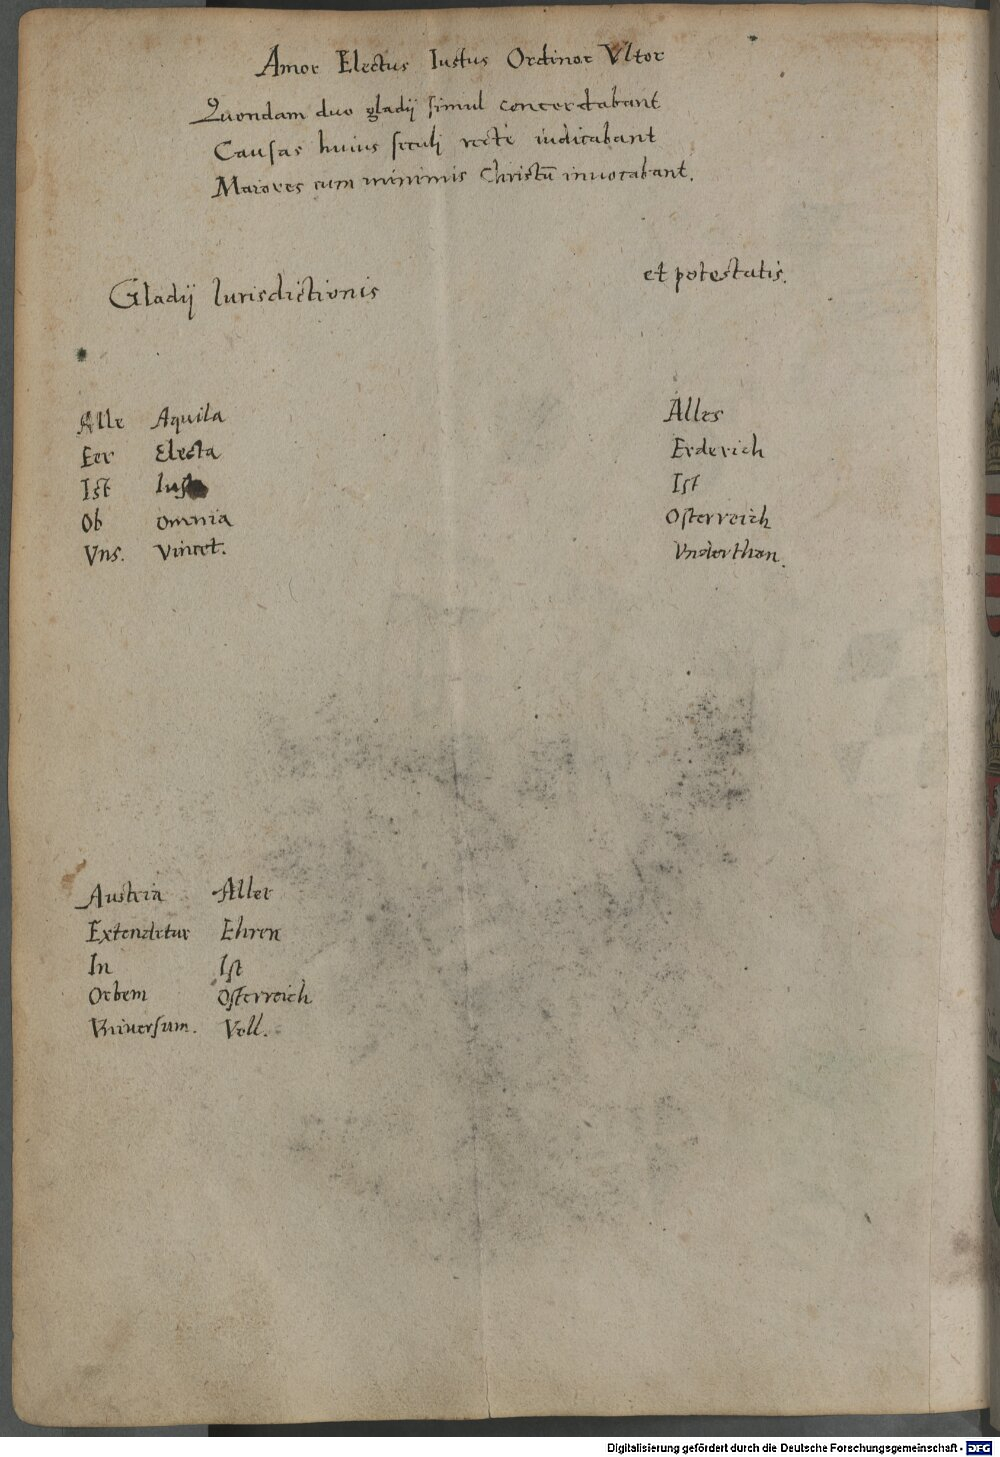 Amor Electus Iustus Ordinor Vltor
Quondam duo gladij simul concordabant
Causas huius seculj recte iudicabant
Maiores cum minimis Christū inuocabant.
Gladij Iurisdictionis
et potestatis.
Alle Aquila
Eer Electa
Ist
Ob omnia
Vns. Vincet.
Alles
Erderich
Ist
Osterreich
Vnderthan.
Austria Aller
Extendetur Ehren
In Ist
Orbem Osterreich
Vniuersum. Voll.
Digitalisierung gefördert durch die Deutsche Forschungsgemeinschaft - DFG